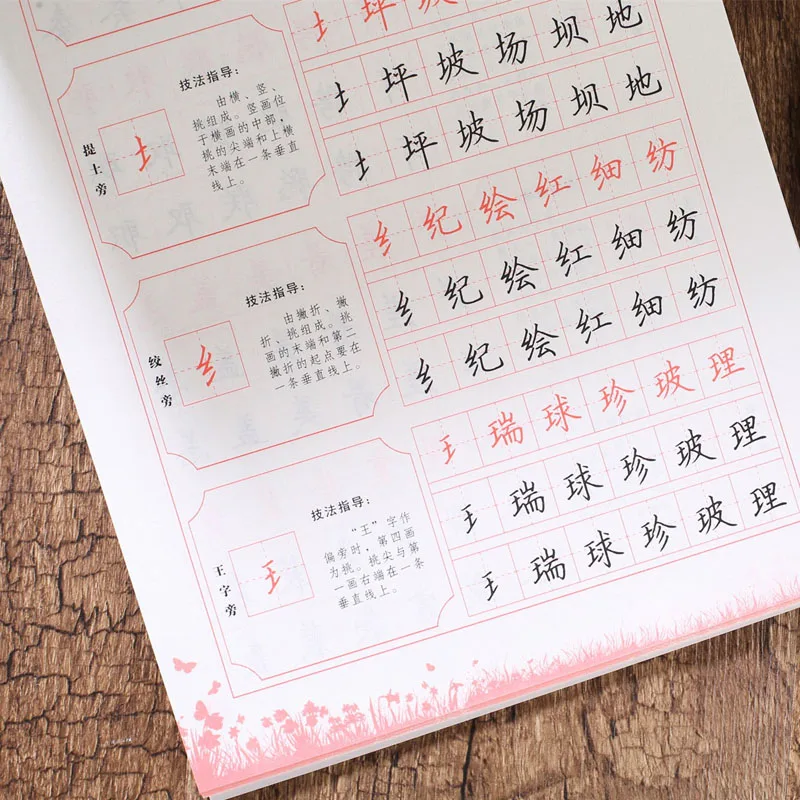 提土旁
技法指导：
由横、竖、
挑组成。竖画位
于横画的中部，
挑的尖端和上横
末端在一条垂直
线上。
土坪坡
土坪坡场坝地
土坪坡场坝地
绞丝旁
技法指导：
由撇折、撇
折、挑组成。挑
画的末端和第二
撇折的起点要在
一条垂直线上。
纟纪绘红细纺
纟纪绘红细纺
纟纪绘红细纺
王字旁
技法指导：
“王”字作
偏旁时，第四画
为挑。挑尖与第
一画右端在一条
垂直线上。
王瑞球珍玻理
王瑞球珍玻理
王瑞球珍玻理